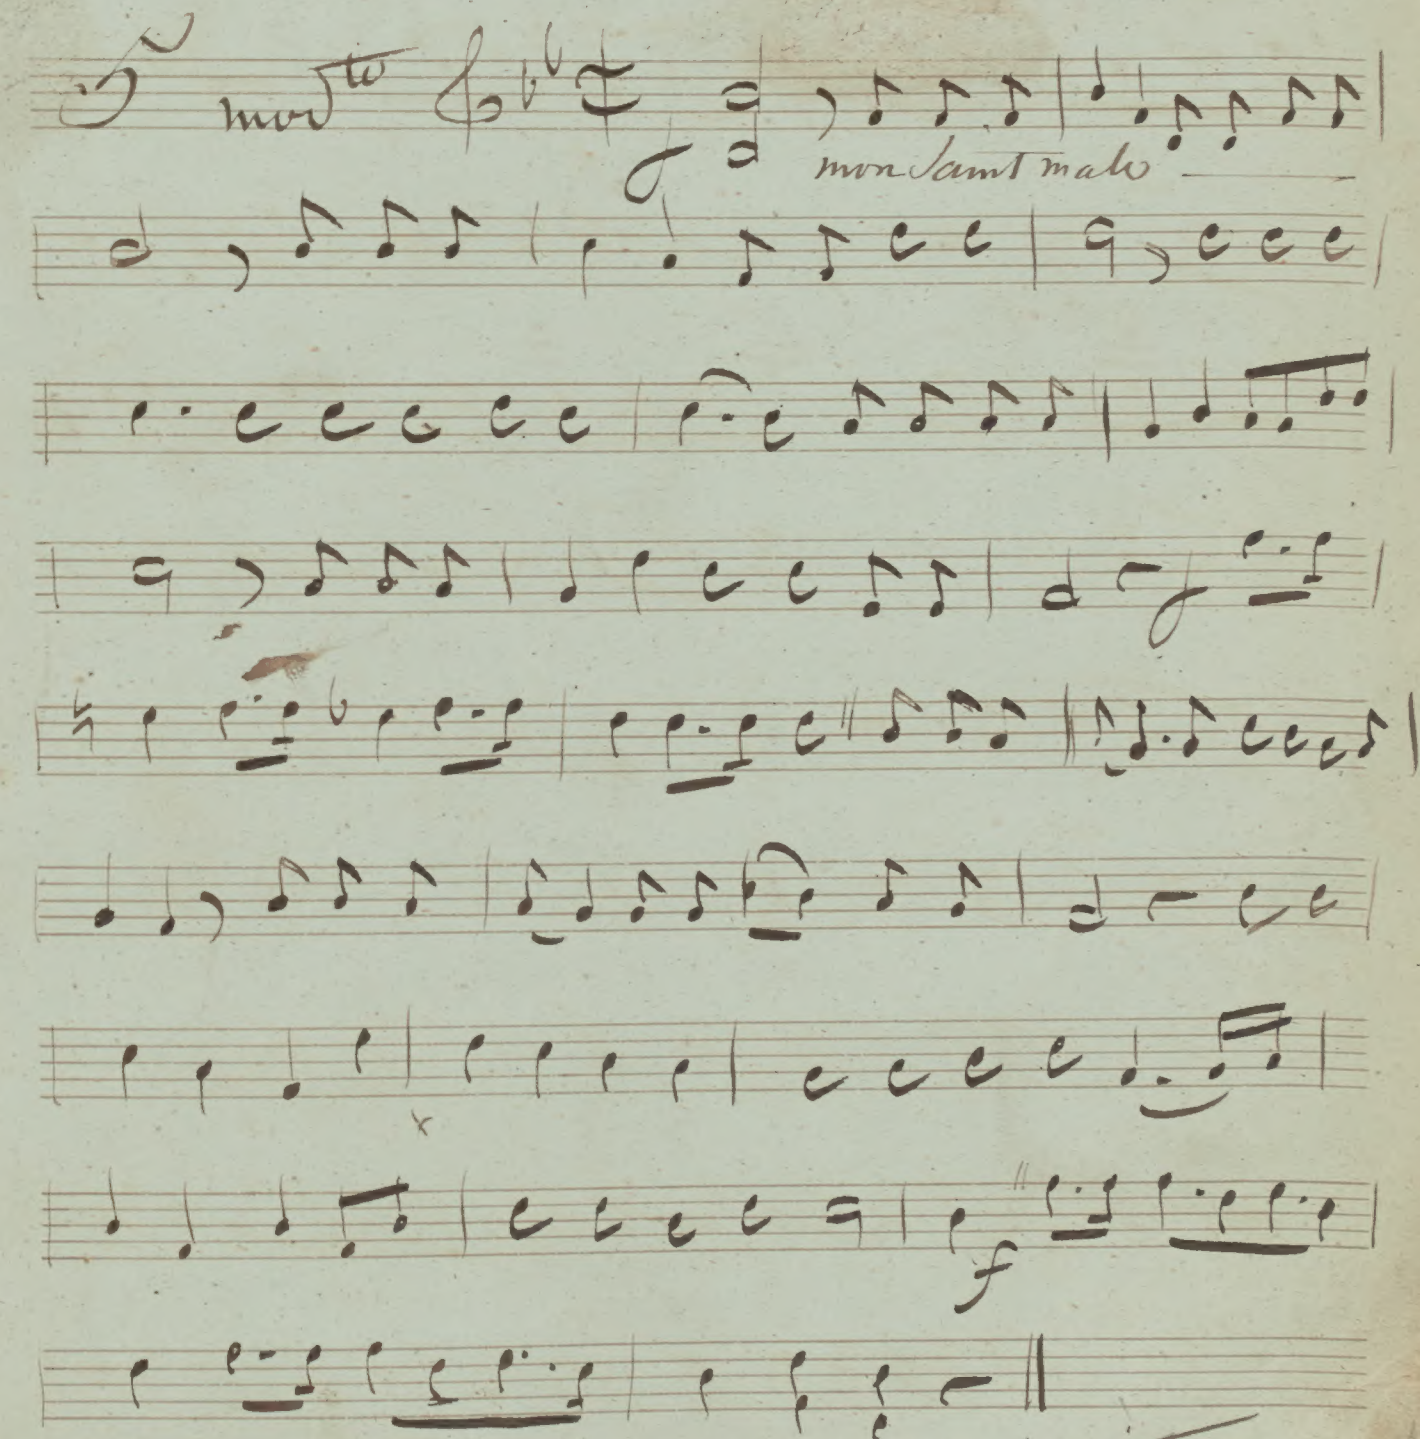 mod to
mon Saint malo
f